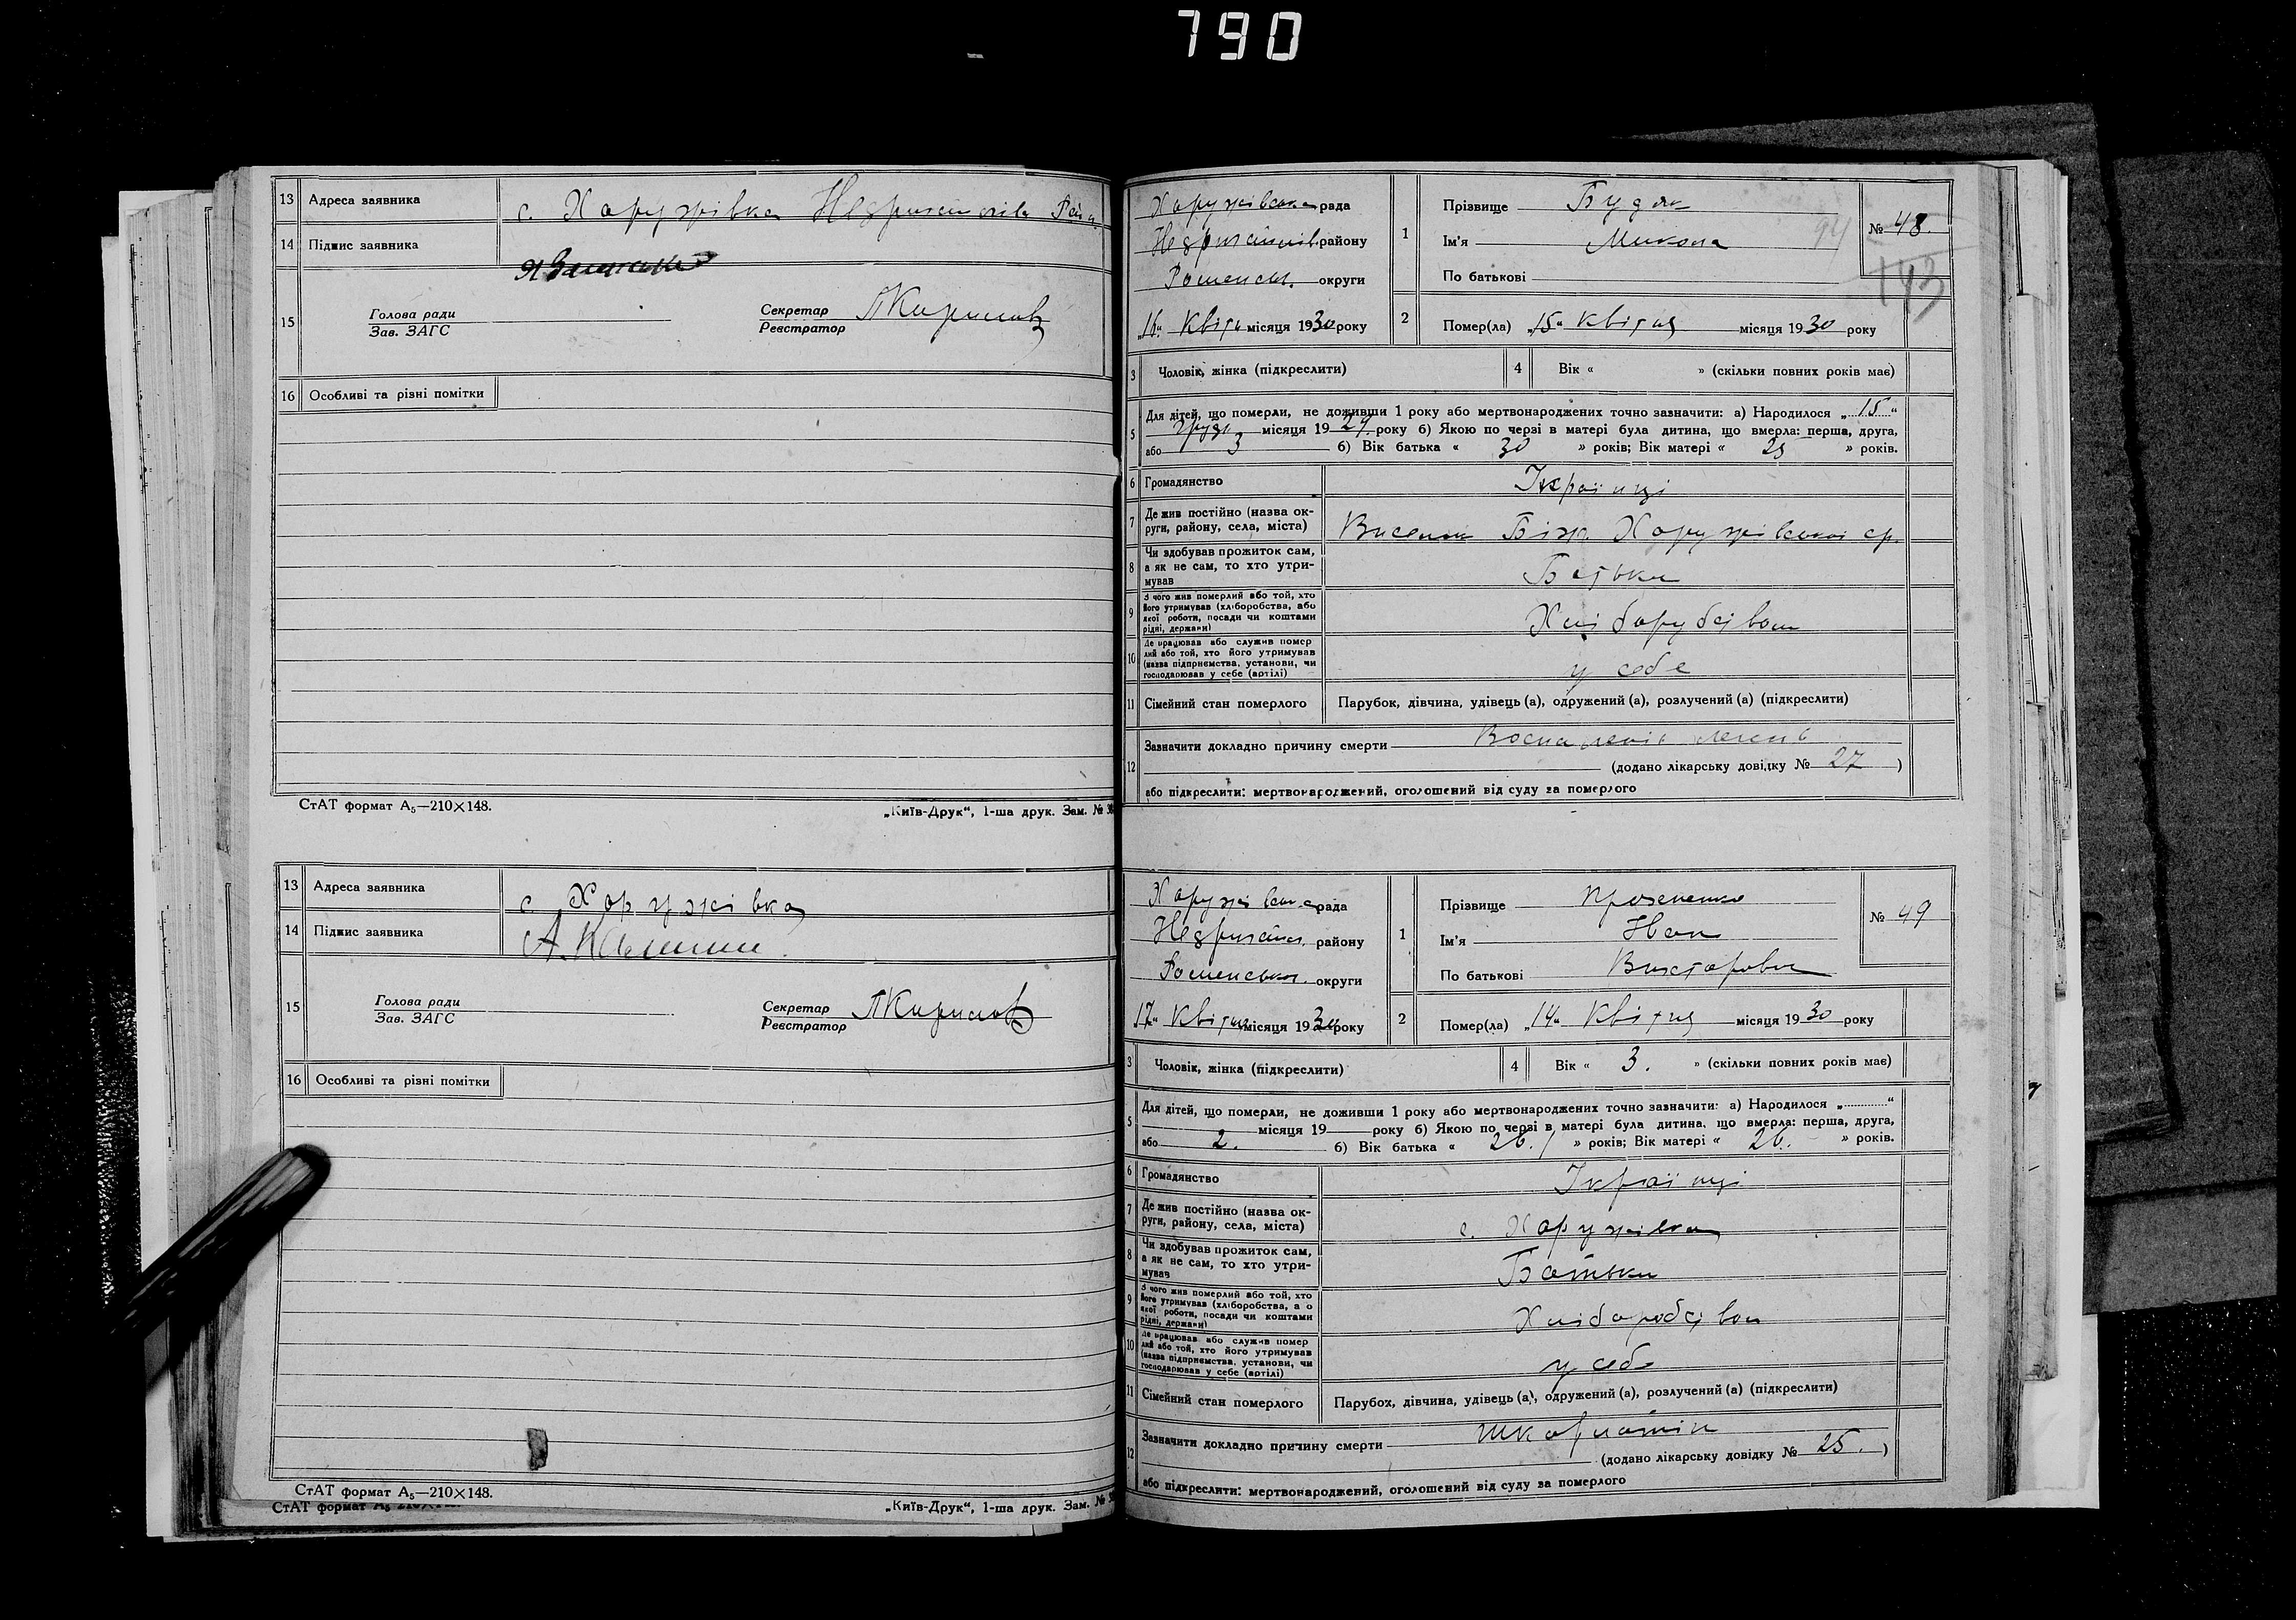 790
13 Адреса заявника с. Харужівка Недригайлів Рай
14 Підпис заявника
15 Голова ради
Зав. ЗАГС
Секретар
Реєстратор
16 Особливі та різні помітки
СтАТ формат А₅—210×148.
„Київ-Друк“, 1-ша друк. Зам. №
13 Адреса заявника с. Харужівка
14 Підпис заявника
15 Голова ради
Зав. ЗАГС
Секретар
Реєстратор
16 Особливі та різні помітки
СтАТ формат А₅—210×148.
СтАТ формат А₅
„Київ-Друк“, 1-ша друк. Зам. №
Харужівська рада
Недригайлів. району
Роменськ. округи
„16“ Квітн місяця 1930 року
1 Прізвище Будяк
Ім'я Микола
По батькові
№ 48.
94
143
2 Помер(ла) „15“ квітня місяця 1930 року
3 Чоловік, жінка (підкреслити) 4 Вік « » (скільки повних років має)
5 Для дітей, що померли, не доживши 1 року або мертвонароджених точно зазначити: а) Народилося „15“
Грудн місяця 1929 року б) Якою по черзі в матері була дитина, що вмерла: перша, друга,
або 3 б) Вік батька « 30 » років; Вік матері « 25 » років.
6 Громадянство Українці
7 Де жив постійно (назва ок-
руги, району, села, міста) Виселок Біж. Харужівської ср.
8 Чи здобував прожиток сам,
а як не сам, то хто утри-
мував Батьки
9 З чого жив померлий або той, хто
його утримував (хліборобства, або
якої роботи, посади чи коштами
рідні, держави) Хліборубством
10 Де працював або служив помер
лий або той, хто його утримував
(назва підприємства, установи, чи
господарював у себе (артілі) у себе
11 Сімейний стан померлого Парубок, дівчина, удівець (а), одружений (а), розлучений (а) (підкреслити)
12 Зазначити докладно причину смерти Воспаленія легенів
(додано лікарську довідку № 27 )
або підкреслити: мертвонароджений, оголошений від суду за померлого
Харужівська рада
Недригайл. району
Роменська. округи
„17“ Квітня місяця 1930 року
1 Прізвище
Ім'я Иван
По батькові Викторович
№ 49
2 Помер(ла) „14“ Квітня місяця 1930 року
3 Чоловік, жінка (підкреслити) 4 Вік « 3. » (скільки повних років має)
5 Для дітей, що померли, не доживши 1 року або мертвонароджених точно зазначити: а) Народилося „ “
місяця 19 року б) Якою по черзі в матері була дитина, що вмерла: перша, друга,
або 2. б) Вік батька « 26. » років; Вік матері « 26. » років.
6 Громадянство Українці
7 Де жив постійно (назва ок-
руги, району, села, міста) с. Харужівка
8 Чи здобував прожиток сам,
а як не сам, то хто утри-
мував Батьки
9 З чого жив померлий або той, хто
його утримував (хліборобства, а о
якої роботи, посади чи коштами
рідні, держави) Хліборобством
10 Де працював або служив помер
лий або той, хто його утримував
(назва підприємства, установи, чи
господарював у себе (артілі) у себе
11 Сімейний стан померлого Парубох, дівчина, удівець (а), одружений (а), розлучений (а) (підкреслити)
12 Зазначити докладно причину смерти Шкарлатін
(додано лікарську довідку № 25. )
або підкреслити: мертвонароджений, оголошений від суду за померлого